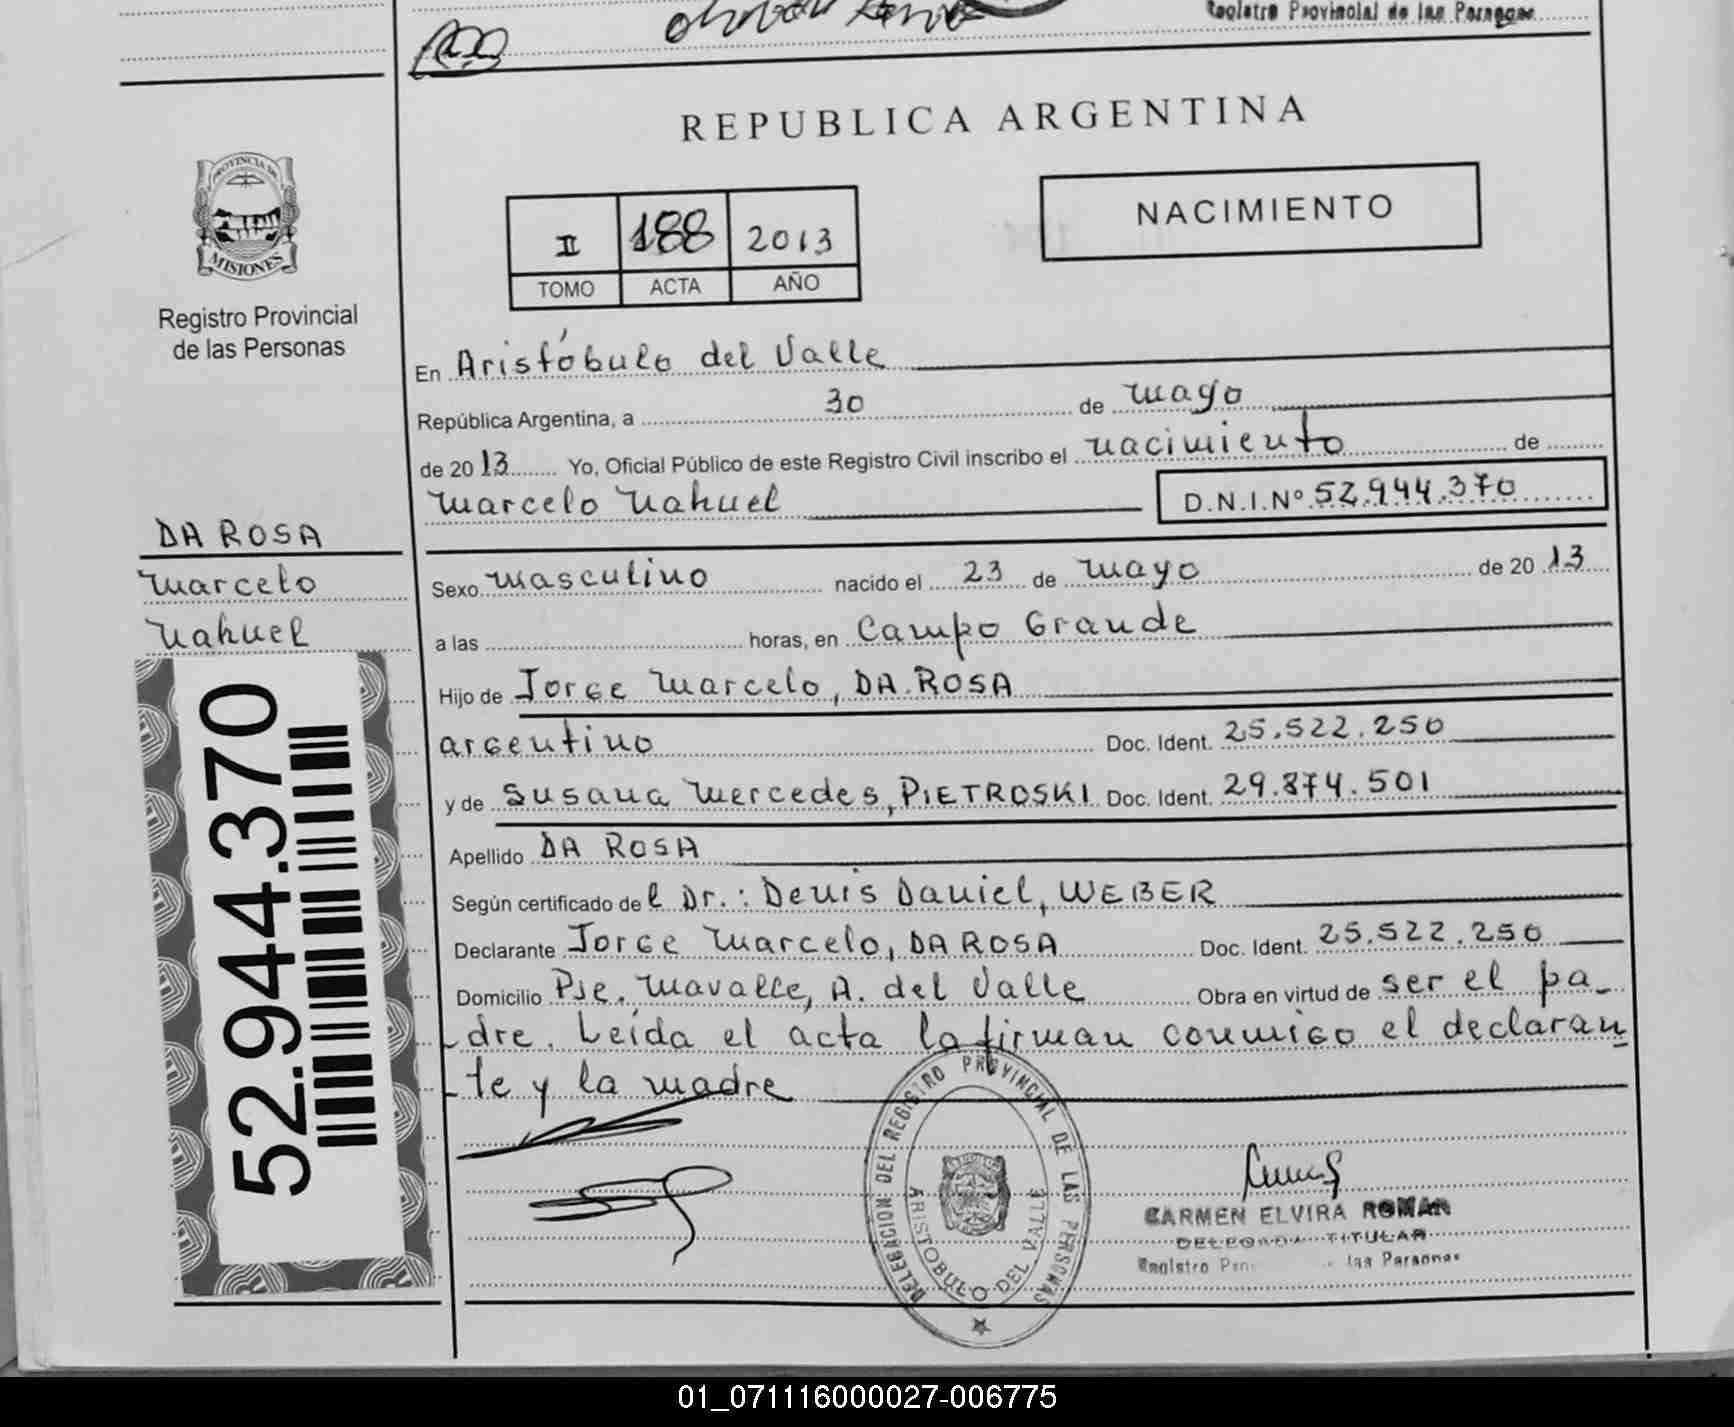 Registro Provincial de las Personas
REPUBLICA ARGENTINA
PROVINCIA DE
MISIONES
Registro Provincial
de las Personas
II 188 2013
TOMO ACTA AÑO
NACIMIENTO
En Aristóbulo del Valle
República Argentina, a 30 de mayo
de 2013 Yo, Oficial Público de este Registro Civil inscribo el nacimiento de
Marcelo Nahuel D.N.I.Nº 52.944.370
DA ROSA
Marcelo
Nahuel
52.944.370
Sexo masculino nacido el 23 de mayo de 2013
a las horas, en Campo Grande
Hijo de Jorge Marcelo, DA ROSA
argentino Doc. Ident. 25.522.250
y de Susana Mercedes, PIETROSKI Doc. Ident. 29.874.501
Apellido DA ROSA
Según certificado del Dr.: Denis Daniel, WEBER
Declarante Jorge Marcelo, DA ROSA Doc. Ident. 25.522.250
Domicilio Pje. Mavalle, A. del Valle Obra en virtud de ser el pa_
dre. Leída el acta la firman conmigo el declaran
te y la madre
DELEGACION DEL REGISTRO PROVINCIAL DE LAS PERSONAS
ARISTOBULO DEL VALLE
CARMEN ELVIRA ROMAN
DELEGADA TITULAR
Registro las Personas
01_071116000027-006775